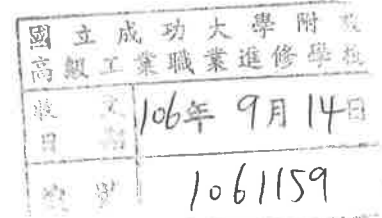 國立成功大學附設
高級工業職業進修學校
收文
日期 106年9月14日
1061159